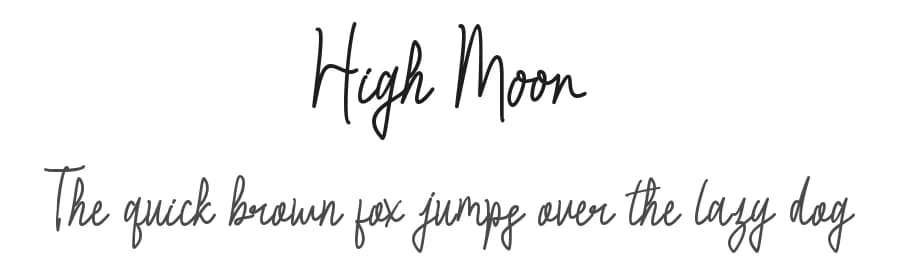 High Moon
The quick brown fox jumps over the lazy dog